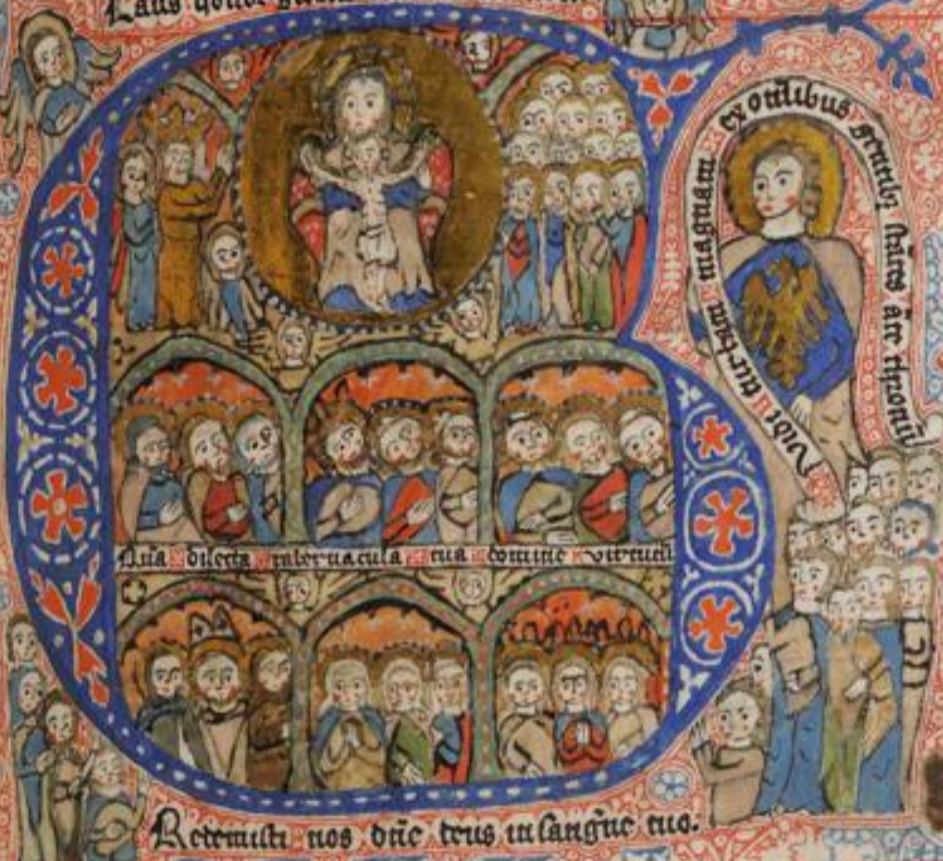 Laus honor
Vidi turbam magnam ex om̄ibus gentib; stātes āte thronū
Qua dilecta tabernacula tua domine virtutū
Redemisti nos dn̄e deus in sangne tuo.